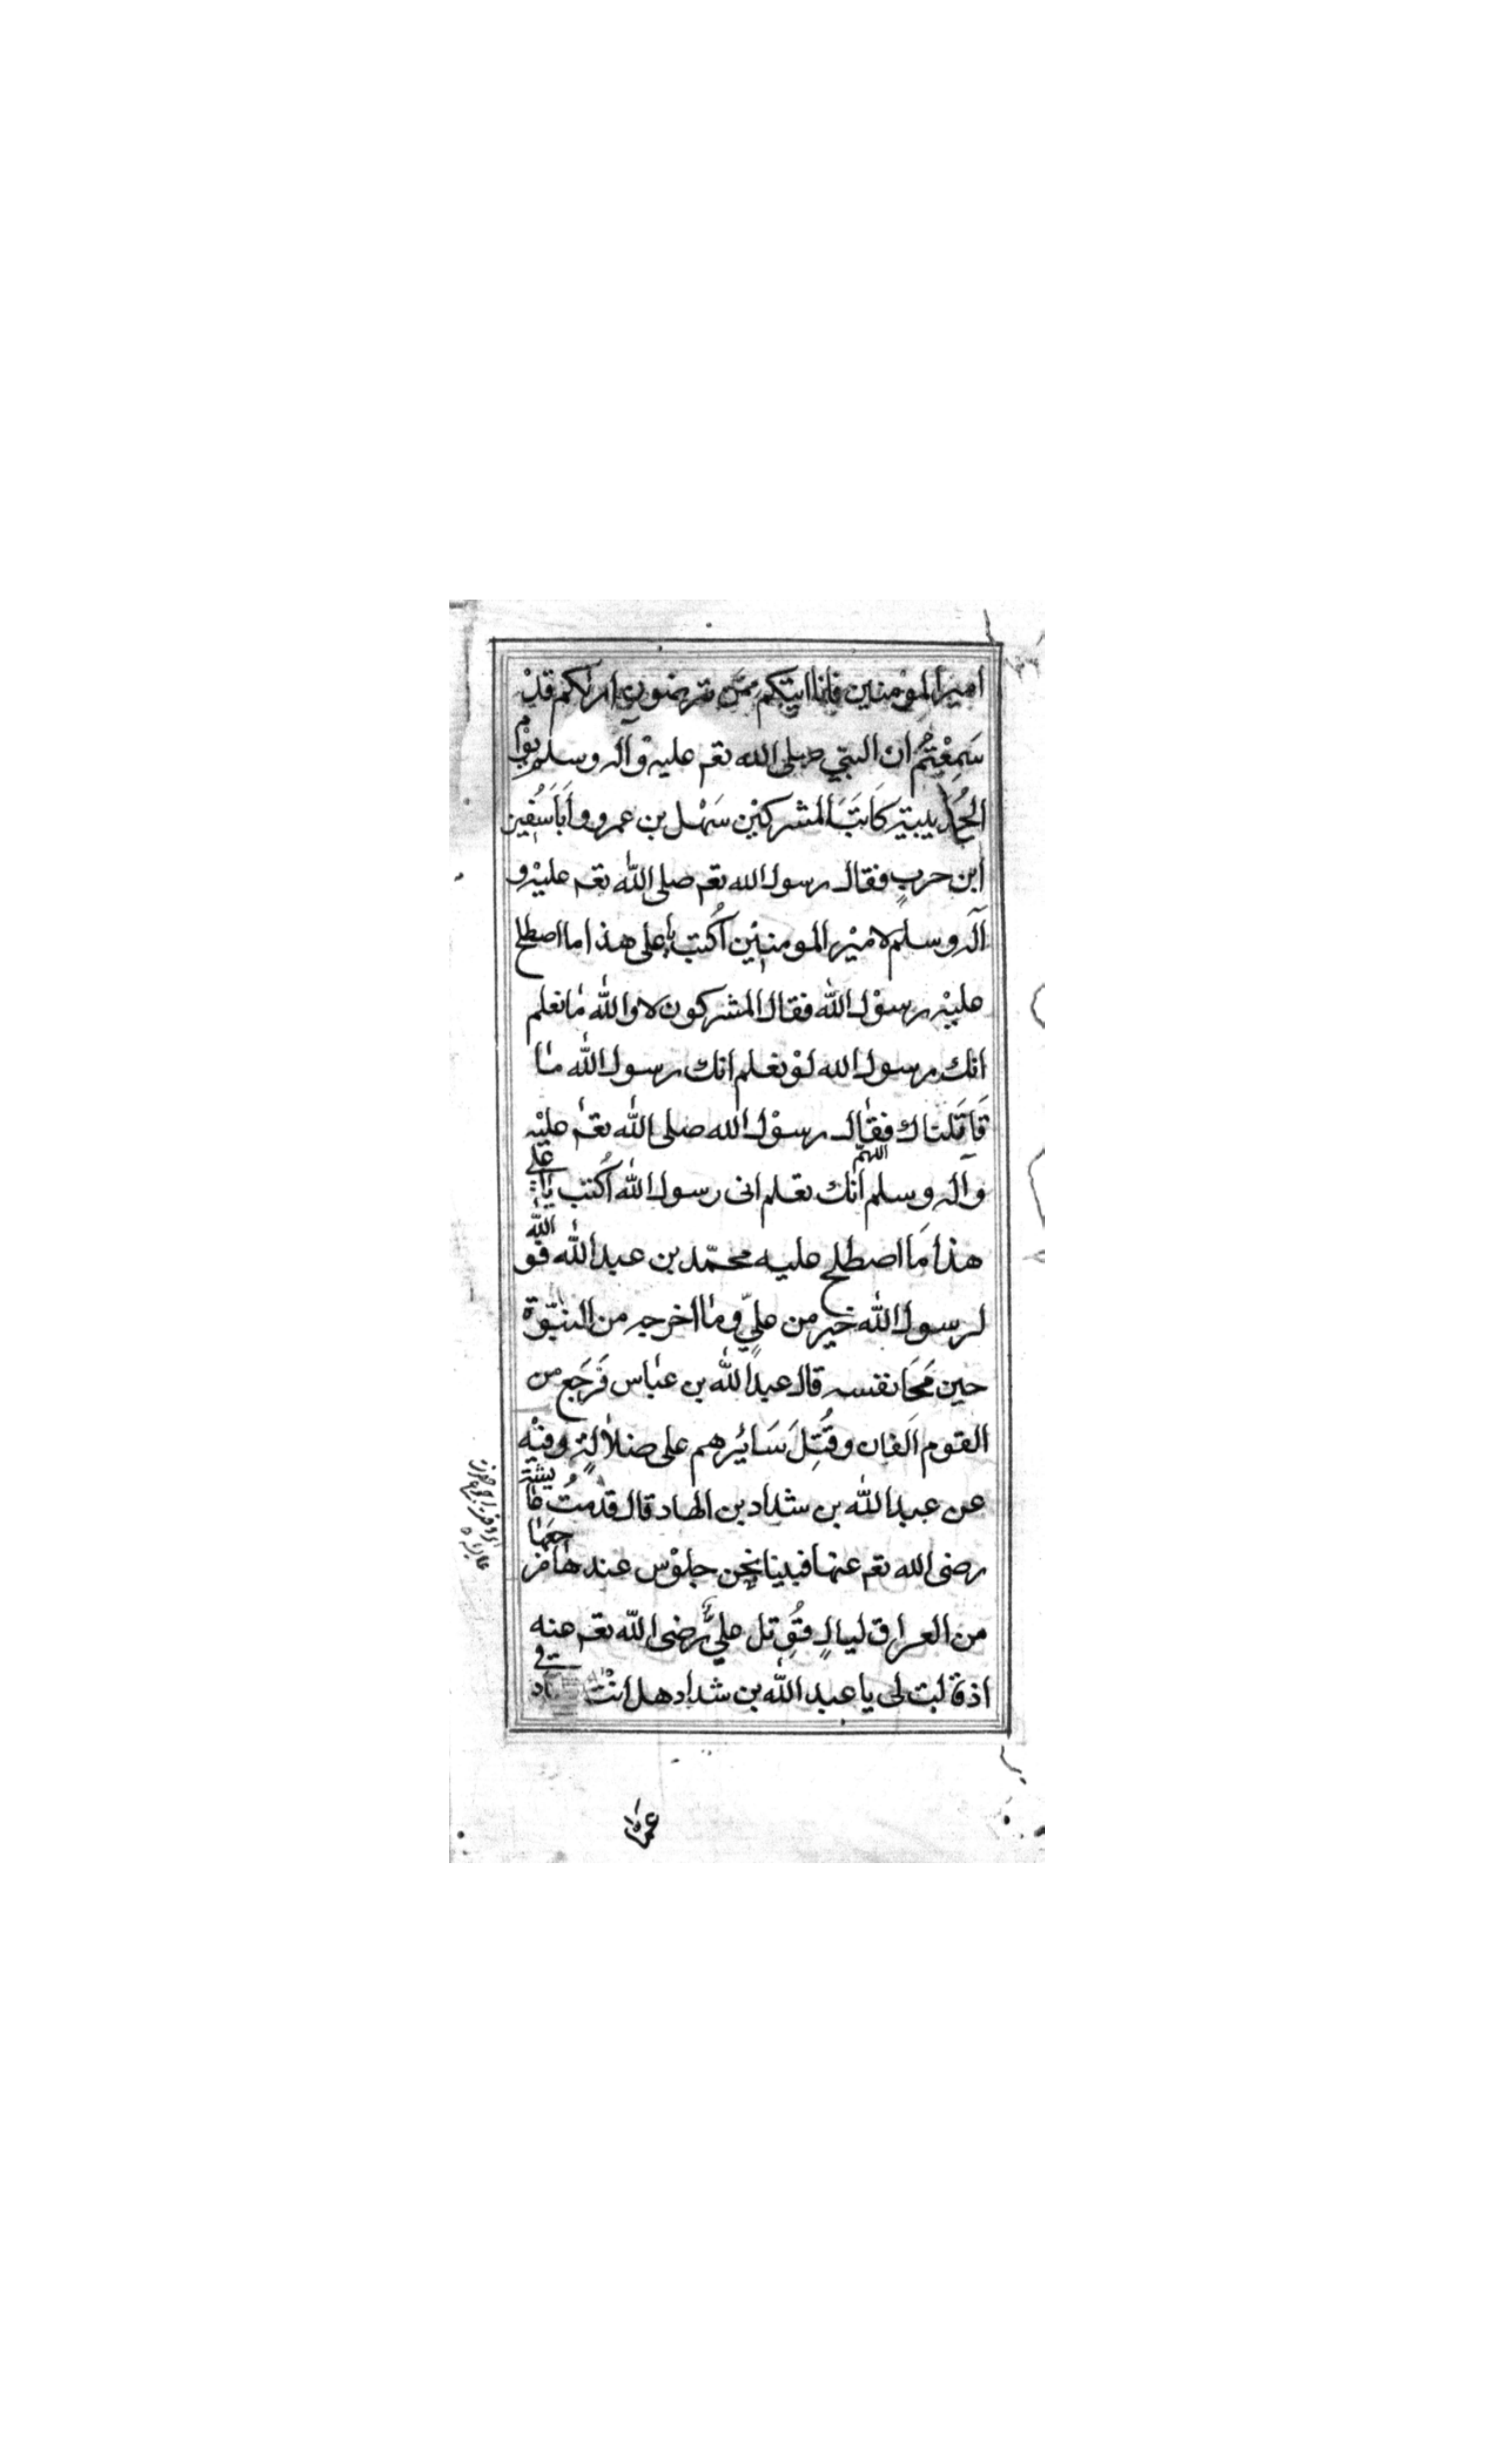 امير المؤمنين فانا اتيتكم بمن ترضون اراكم قدْ
سَمِعْتُمْ ان النبي صلى الله تعم عليه وآله وسلم يوْم
الحُدَيبية كَاتَبَ المشركيْن سَهْل بن عمرو وأَبَا سُفين
ابن حربٍ فقال رسول الله تعم صلى الله تعم عليْه و
آله وسلم لاميْر المومنيْن اُكتب يا على هذا ما اصطلح
عليْه رسوْل الله فقال المشركون لا والله مَا نعلم
انك رسول الله لوْ نعلم انك رسول الله ما
قَاتَلناك فقال رسوْل الله صلى الله تعم عليْه
وآله وسلم اللهم انك تعلم انى رسول الله اُكتب يا على
هذا مَا اصطلح عليه محمّد بن عبد الله فو الله
لرسول الله خير من عليّ وما اخرجه من النبّوة
حين مَحَا نفسه قال عبد الله بن عباس فَرَجَع من
القوم اَلفان وقُتِلَ سَائرهم على ضلالةٍ وفيْه
عن عبد الله بن شداد بن الهاد قال قدمتُ عايشة
رضى الله تعم عنها فبينا نحن جلوْس عندها مرجعها
من العراق ليالٍ قُوِتل عليٌّ رضى الله تعم عنه
اذ قالت لى يا عبد الله بن شداد هل انْت